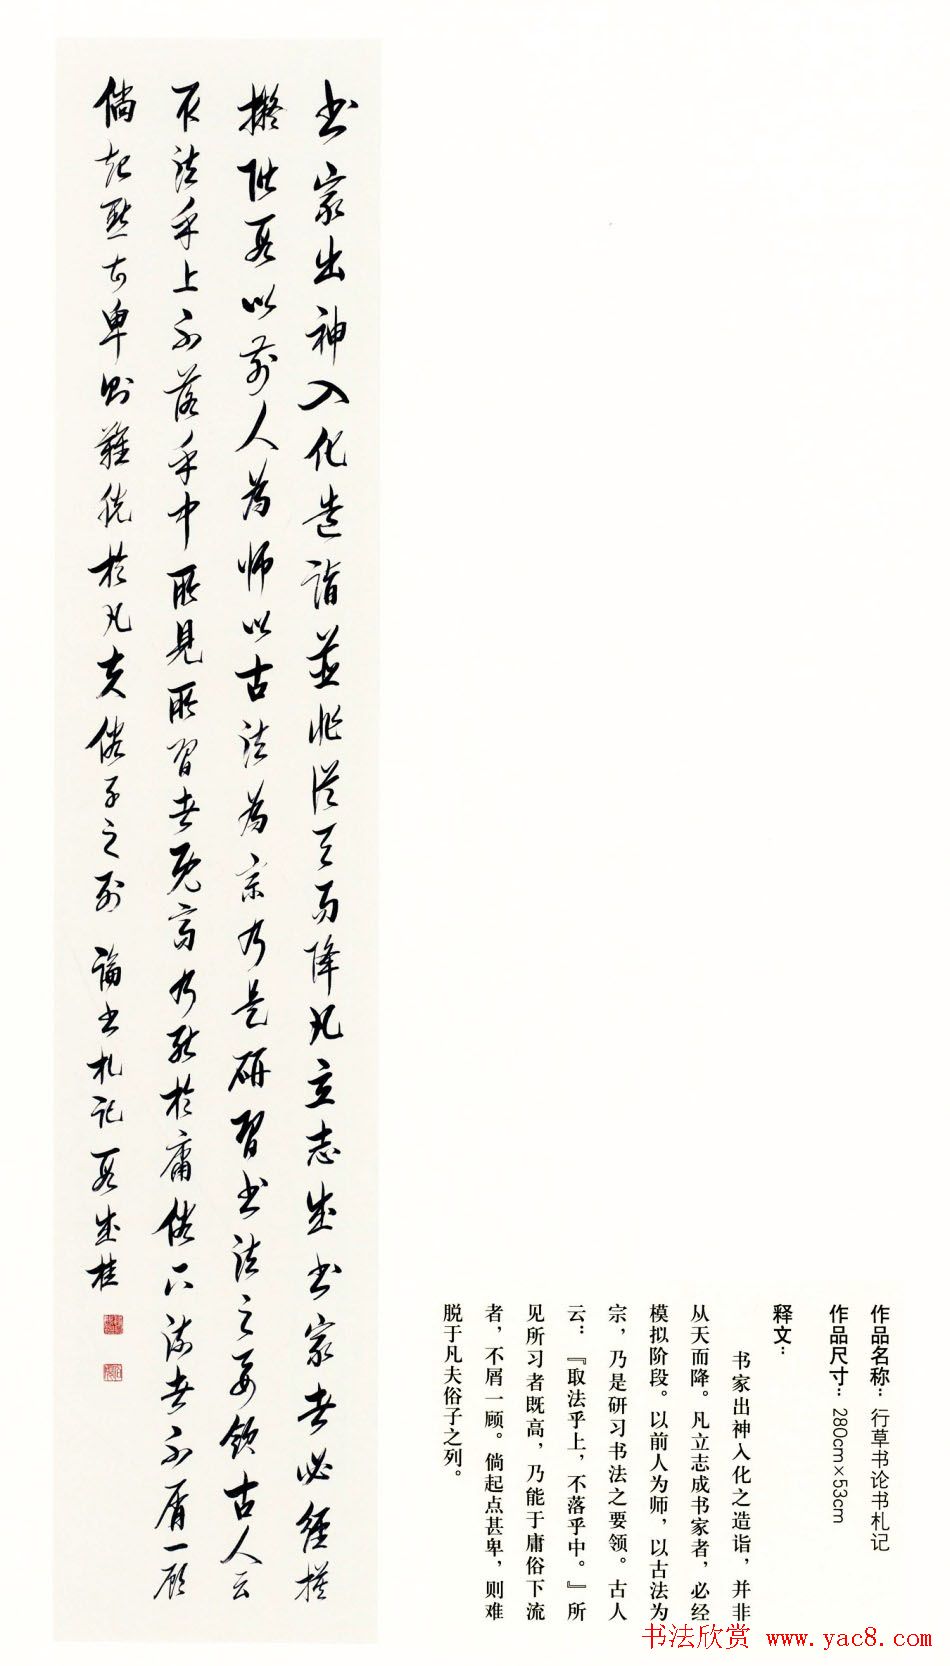 作品名称：行草书论书札记
作品尺寸：280cm×53cm
释文：
书家出神入化之造诣，并非
从天而降。凡立志成书家者，必经
模拟阶段。以前人为师，以古法为
宗，乃是研习书法之要领。古人
云：『取法乎上，不落乎中。』所
见所习者既高，乃能于庸俗下流
者，不屑一顾。倘起点甚卑，则难
脱于凡夫俗子之列。
書家出神入化造詣並非從天而降凡立志成書家者必經摸
擬階段以前人為師以古法為宗乃是研習書法之要領古人云
取法乎上不落乎中所見所習者既高乃能於庸俗下流者不屑一顧
倘起點甚卑則難脫於凡夫俗子之列 論書札記 段成桂
书法欣赏 www.yac8.com